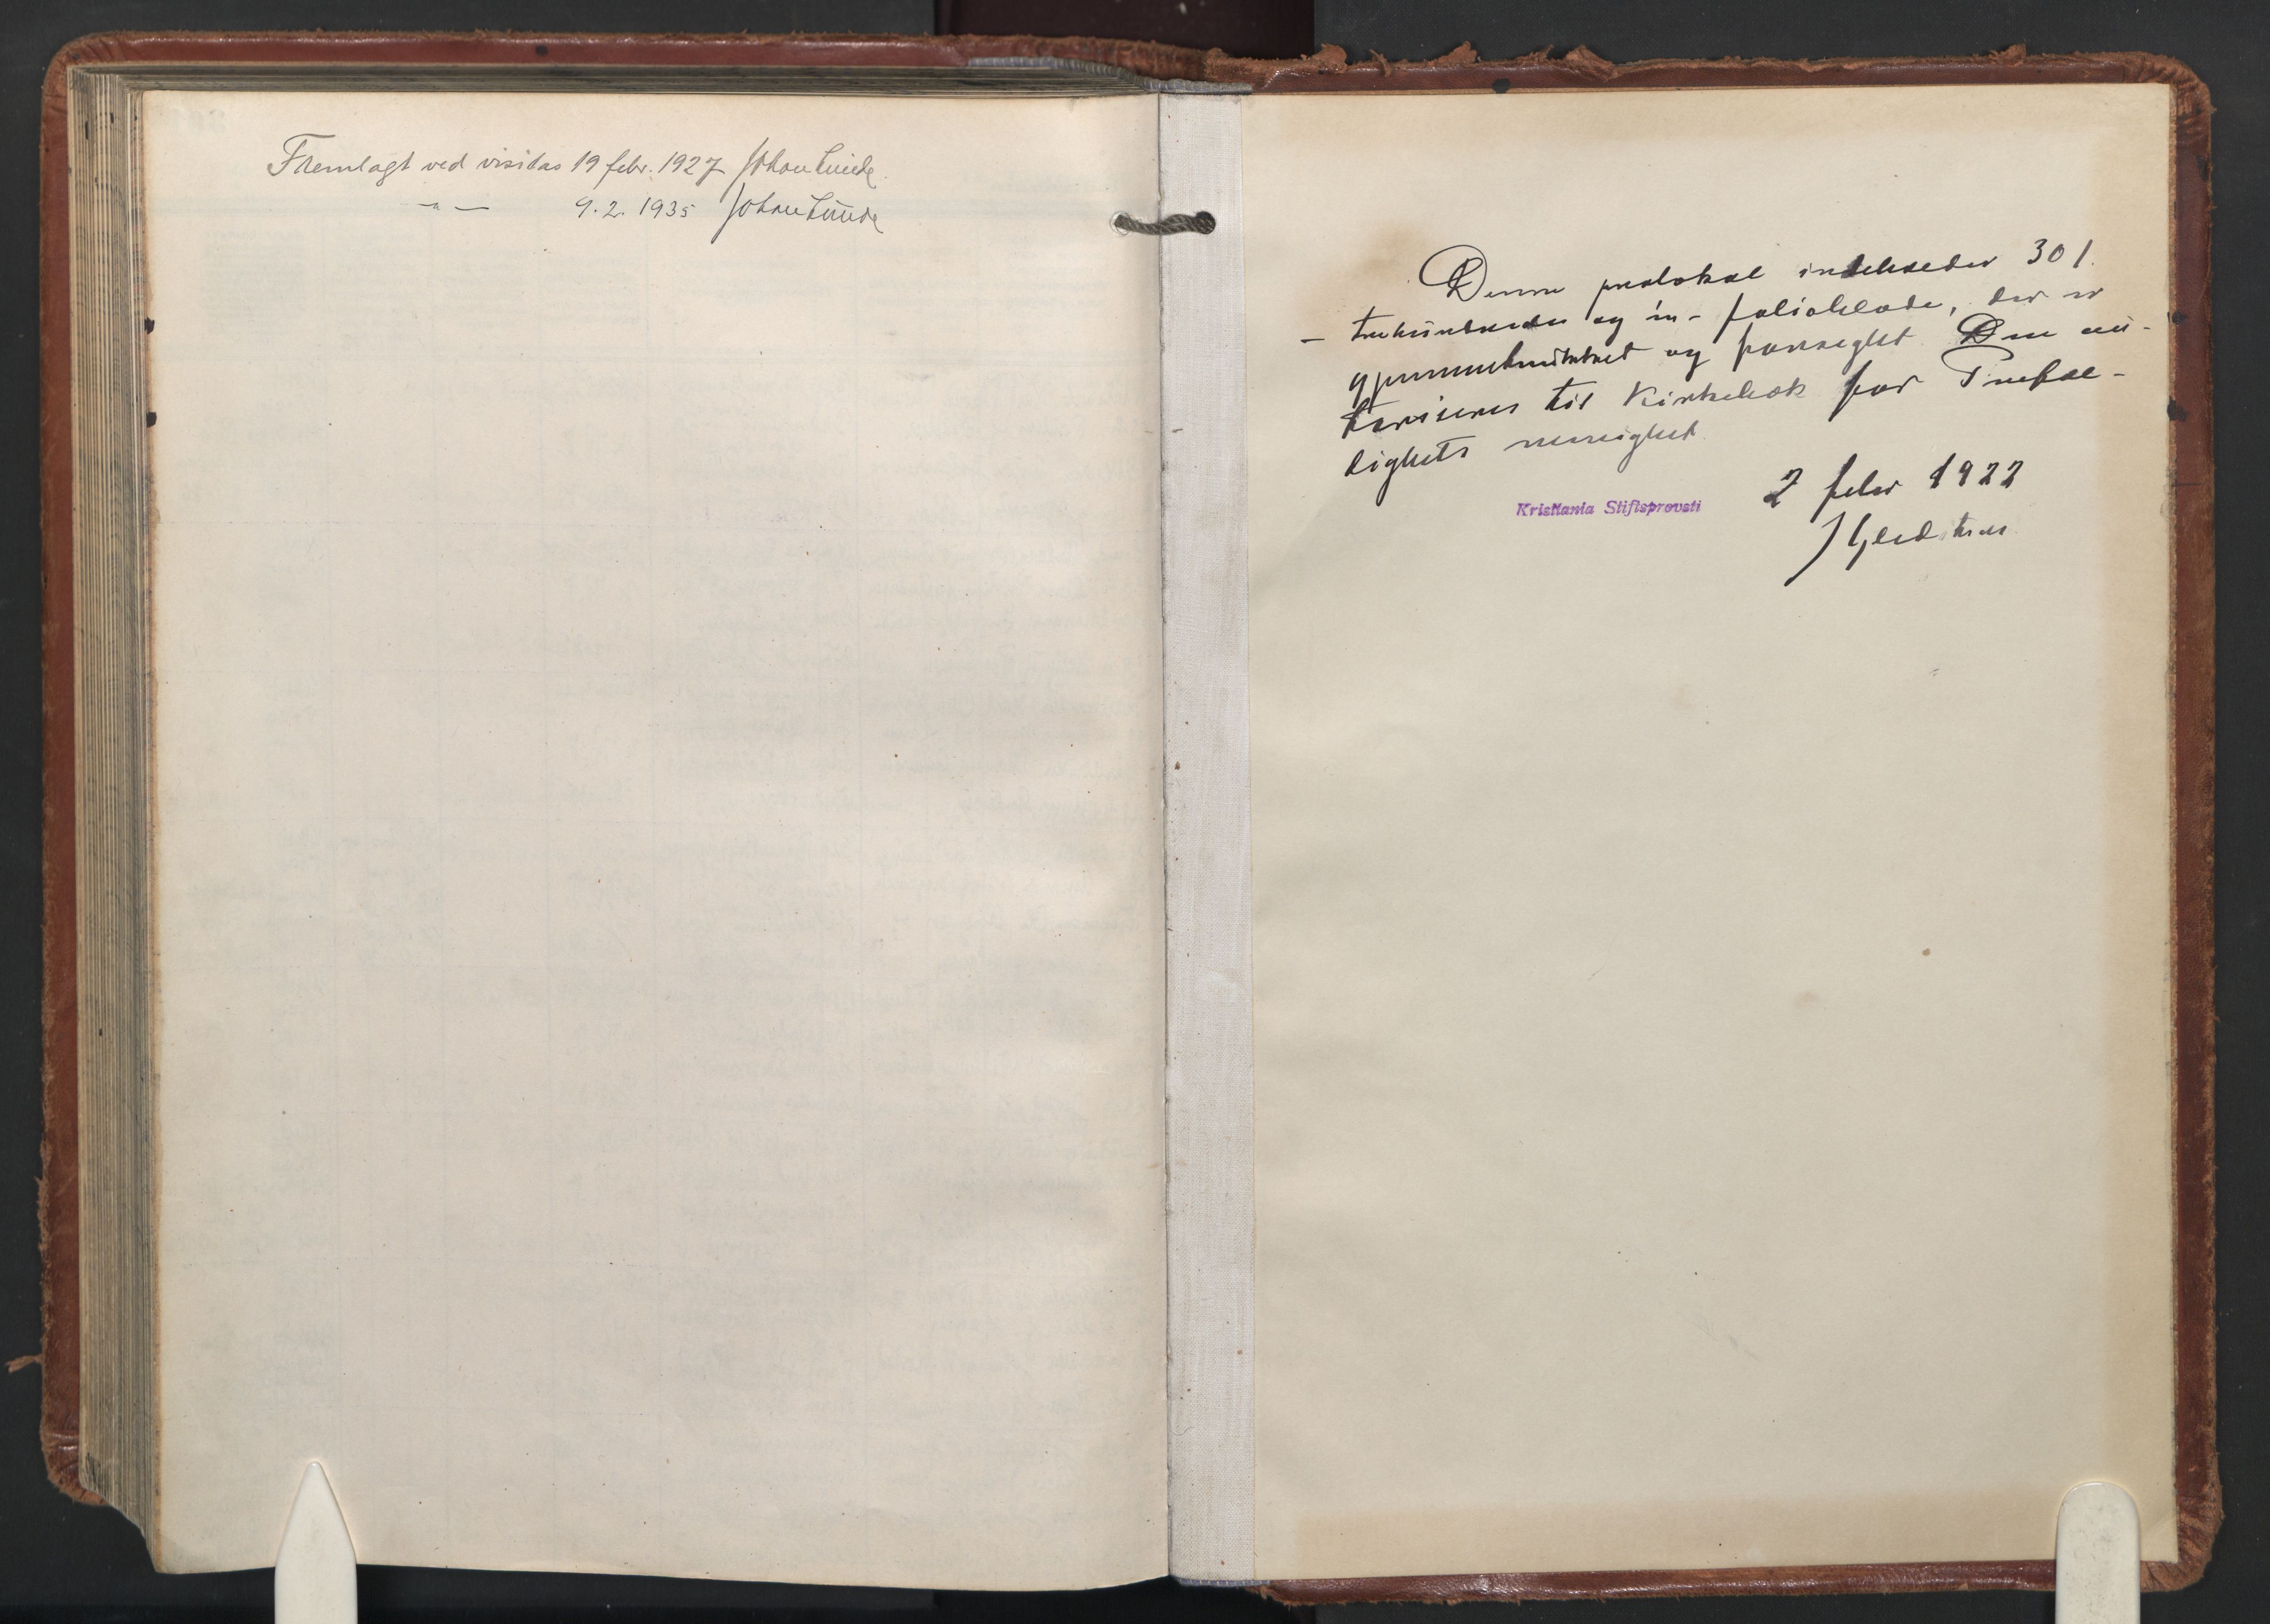 Fremlagt ved visitas 19 febr. 1927 Johan Lunde.
— " — 9. 2. 1935 Johan Lunde
Denne protokol indeholder 301.
— trehundrede og én – folioblade, der er
gjennemdraget og forseglet. Den au-
toriseres til kirkebok for Trefol-
dighets menighet.
2 febr 1922
Kristiania Stiftsprovsti
J Gleditsch